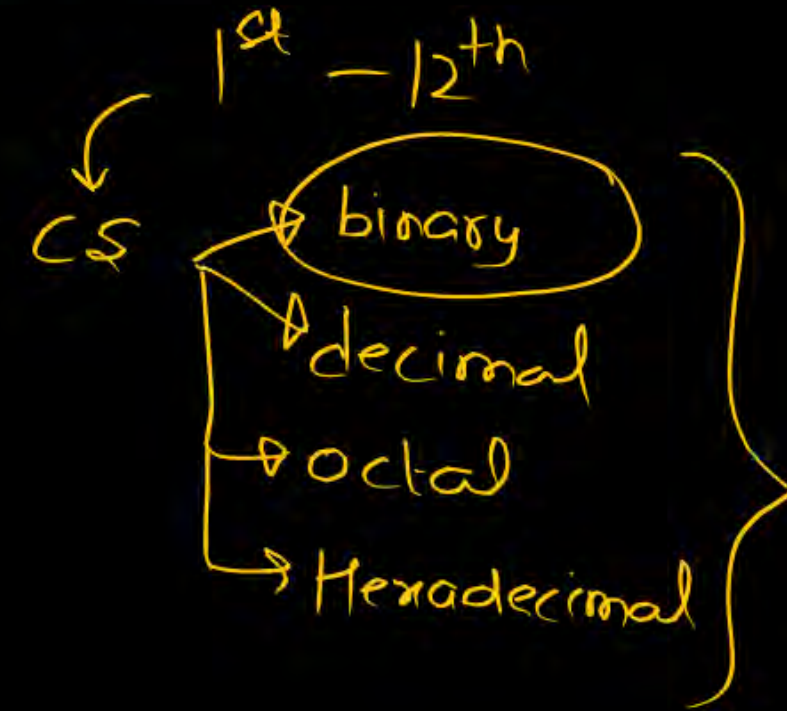 1st - 12th
CS
binary
decimal
octal
Hexadecimal